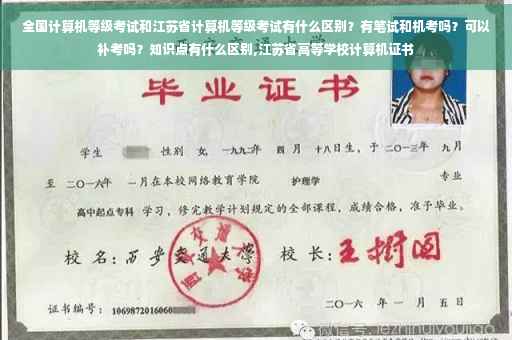 全国计算机等级考试和江苏省计算机等级考试有什么区别？有笔试和机考吗？可以
补考吗？知识点有什么区别,江苏省高等学校计算机证书
毕业证书
学生 性别 女, 一九九二年 四月 十八日生, 于二〇一三年 九月
至 二〇一六年 一月在本校网络教育学院 护理学 专业
高中起点专科 学习, 修完教学计划规定的全部课程, 成绩合格, 准予毕业。
校 名: 西安交通大学 校 长: 王树国
西安交通大学
二〇一六 年 一 月 五 日
证书编号: 1069872016060
微信号: jezhinuiyoujiao